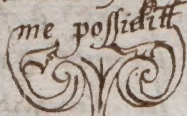 me possidett